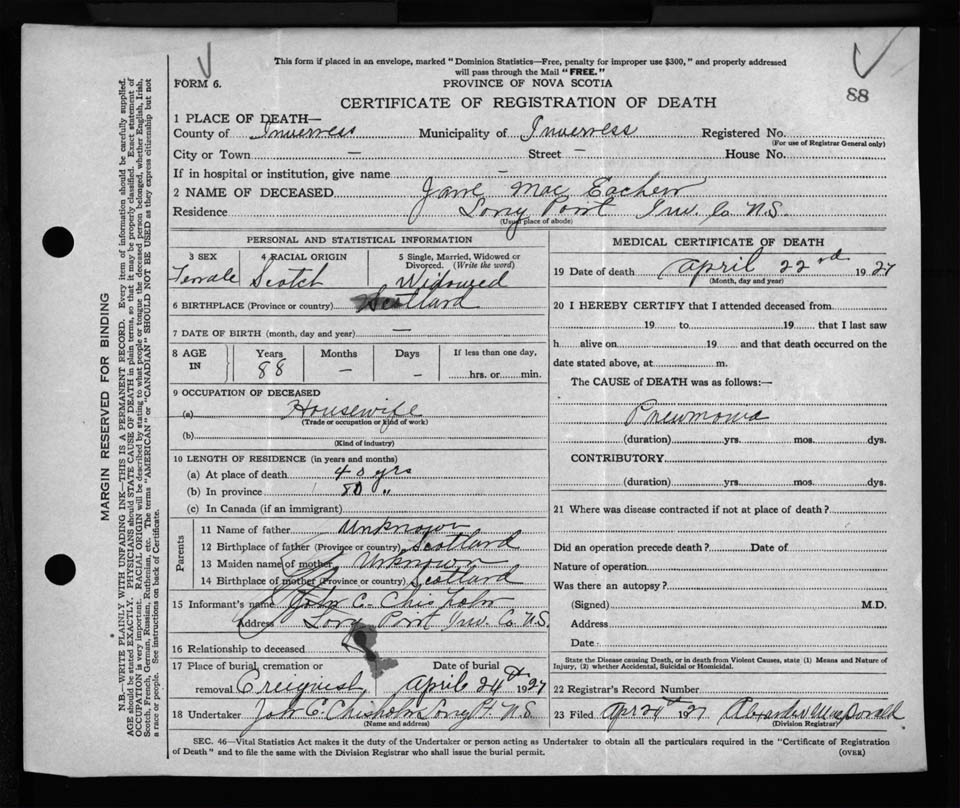 This form if placed in an envelope, marked "Dominion Statistics—Free, penalty for improper use $300," and properly addressed
will pass through the Mail "FREE."
FORM 6.
PROVINCE OF NOVA SCOTIA
88
CERTIFICATE OF REGISTRATION OF DEATH
1 PLACE OF DEATH—
County of Inverness Municipality of Inverness Registered No.
(For use of Registrar General only)
City or Town — Street — House No.
If in hospital or institution, give name —
2 NAME OF DECEASED Jane Mac Eachern
Residence Long Point Inv. Co N.S.
(Usual place of abode)
PERSONAL AND STATISTICAL INFORMATION
3 SEX 4 RACIAL ORIGIN 5 Single, Married, Widowed or
Divorced. (Write the word)
Female Scotch Widowed
6 BIRTHPLACE (Province or country) Scotland
7 DATE OF BIRTH (month, day and year) —
8 AGE IN Years Months Days If less than one day,
88 — — hrs. or min.
9 OCCUPATION OF DECEASED
(a) Housewife
(Trade or occupation or kind of work)
(b)
(Kind of industry)
10 LENGTH OF RESIDENCE (in years and months)
(a) At place of death 40 yrs
(b) In province 80 "
(c) In Canada (if an immigrant)
Parents
11 Name of father Unknown
12 Birthplace of father (Province or country) Scotland
13 Maiden name of mother Unknown
14 Birthplace of mother (Province or country) Scotland
15 Informant's name John C. Chisholm
Address Long Point Inv. Co N.S.
16 Relationship to deceased
17 Place of burial, cremation or Date of burial
removal Creignish April 24th 1927
18 Undertaker John C Chisholm Long Pt. N.S.
(Name and address)
MEDICAL CERTIFICATE OF DEATH
19 Date of death April 22nd 1927
(Month, day and year)
20 I HEREBY CERTIFY that I attended deceased from
19 to 19 that I last saw
h alive on 19 and that death occurred on the
date stated above, at m.
The CAUSE of DEATH was as follows:—
Pneumonia
(duration) yrs. mos. dys.
CONTRIBUTORY
(duration) yrs. mos. dys.
21 Where was disease contracted if not at place of death?
Did an operation precede death? Date of
Nature of operation
Was there an autopsy?
(Signed) M.D.
Address
Date
State the Disease causing Death, or in death from Violent Causes, state (1) Means and Nature of
Injury, (2) whether Accidental, Suicidal or Homicidal.
22 Registrar's Record Number
23 Filed Apr 24th 1927 Alexander MacDonald
(Division Registrar)
SEC. 46—Vital Statistics Act makes it the duty of the Undertaker or person acting as Undertaker to obtain all the particulars required in the "Certificate of Registration
of Death" and to file the same with the Division Registrar who shall issue the burial permit.
(OVER)
MARGIN RESERVED FOR BINDING
N.B.—WRITE PLAINLY WITH UNFADING INK—THIS IS A PERMANENT RECORD. Every item of information should be carefully supplied.
AGE should be stated EXACTLY. PHYSICIANS should STATE CAUSE OF DEATH in plain terms, so that it may be properly classified. Exact statement of
OCCUPATION is very important. RACIAL ORIGIN will be described by stating to what people or tongue the deceased person belonged, whether English, Irish,
Scotch, French, German, Russian, Ruthenian, etc. The terms "AMERICAN" or "CANADIAN" SHOULD NOT BE USED as they express citizenship but not
a race or people. See instructions on back of Certificate.